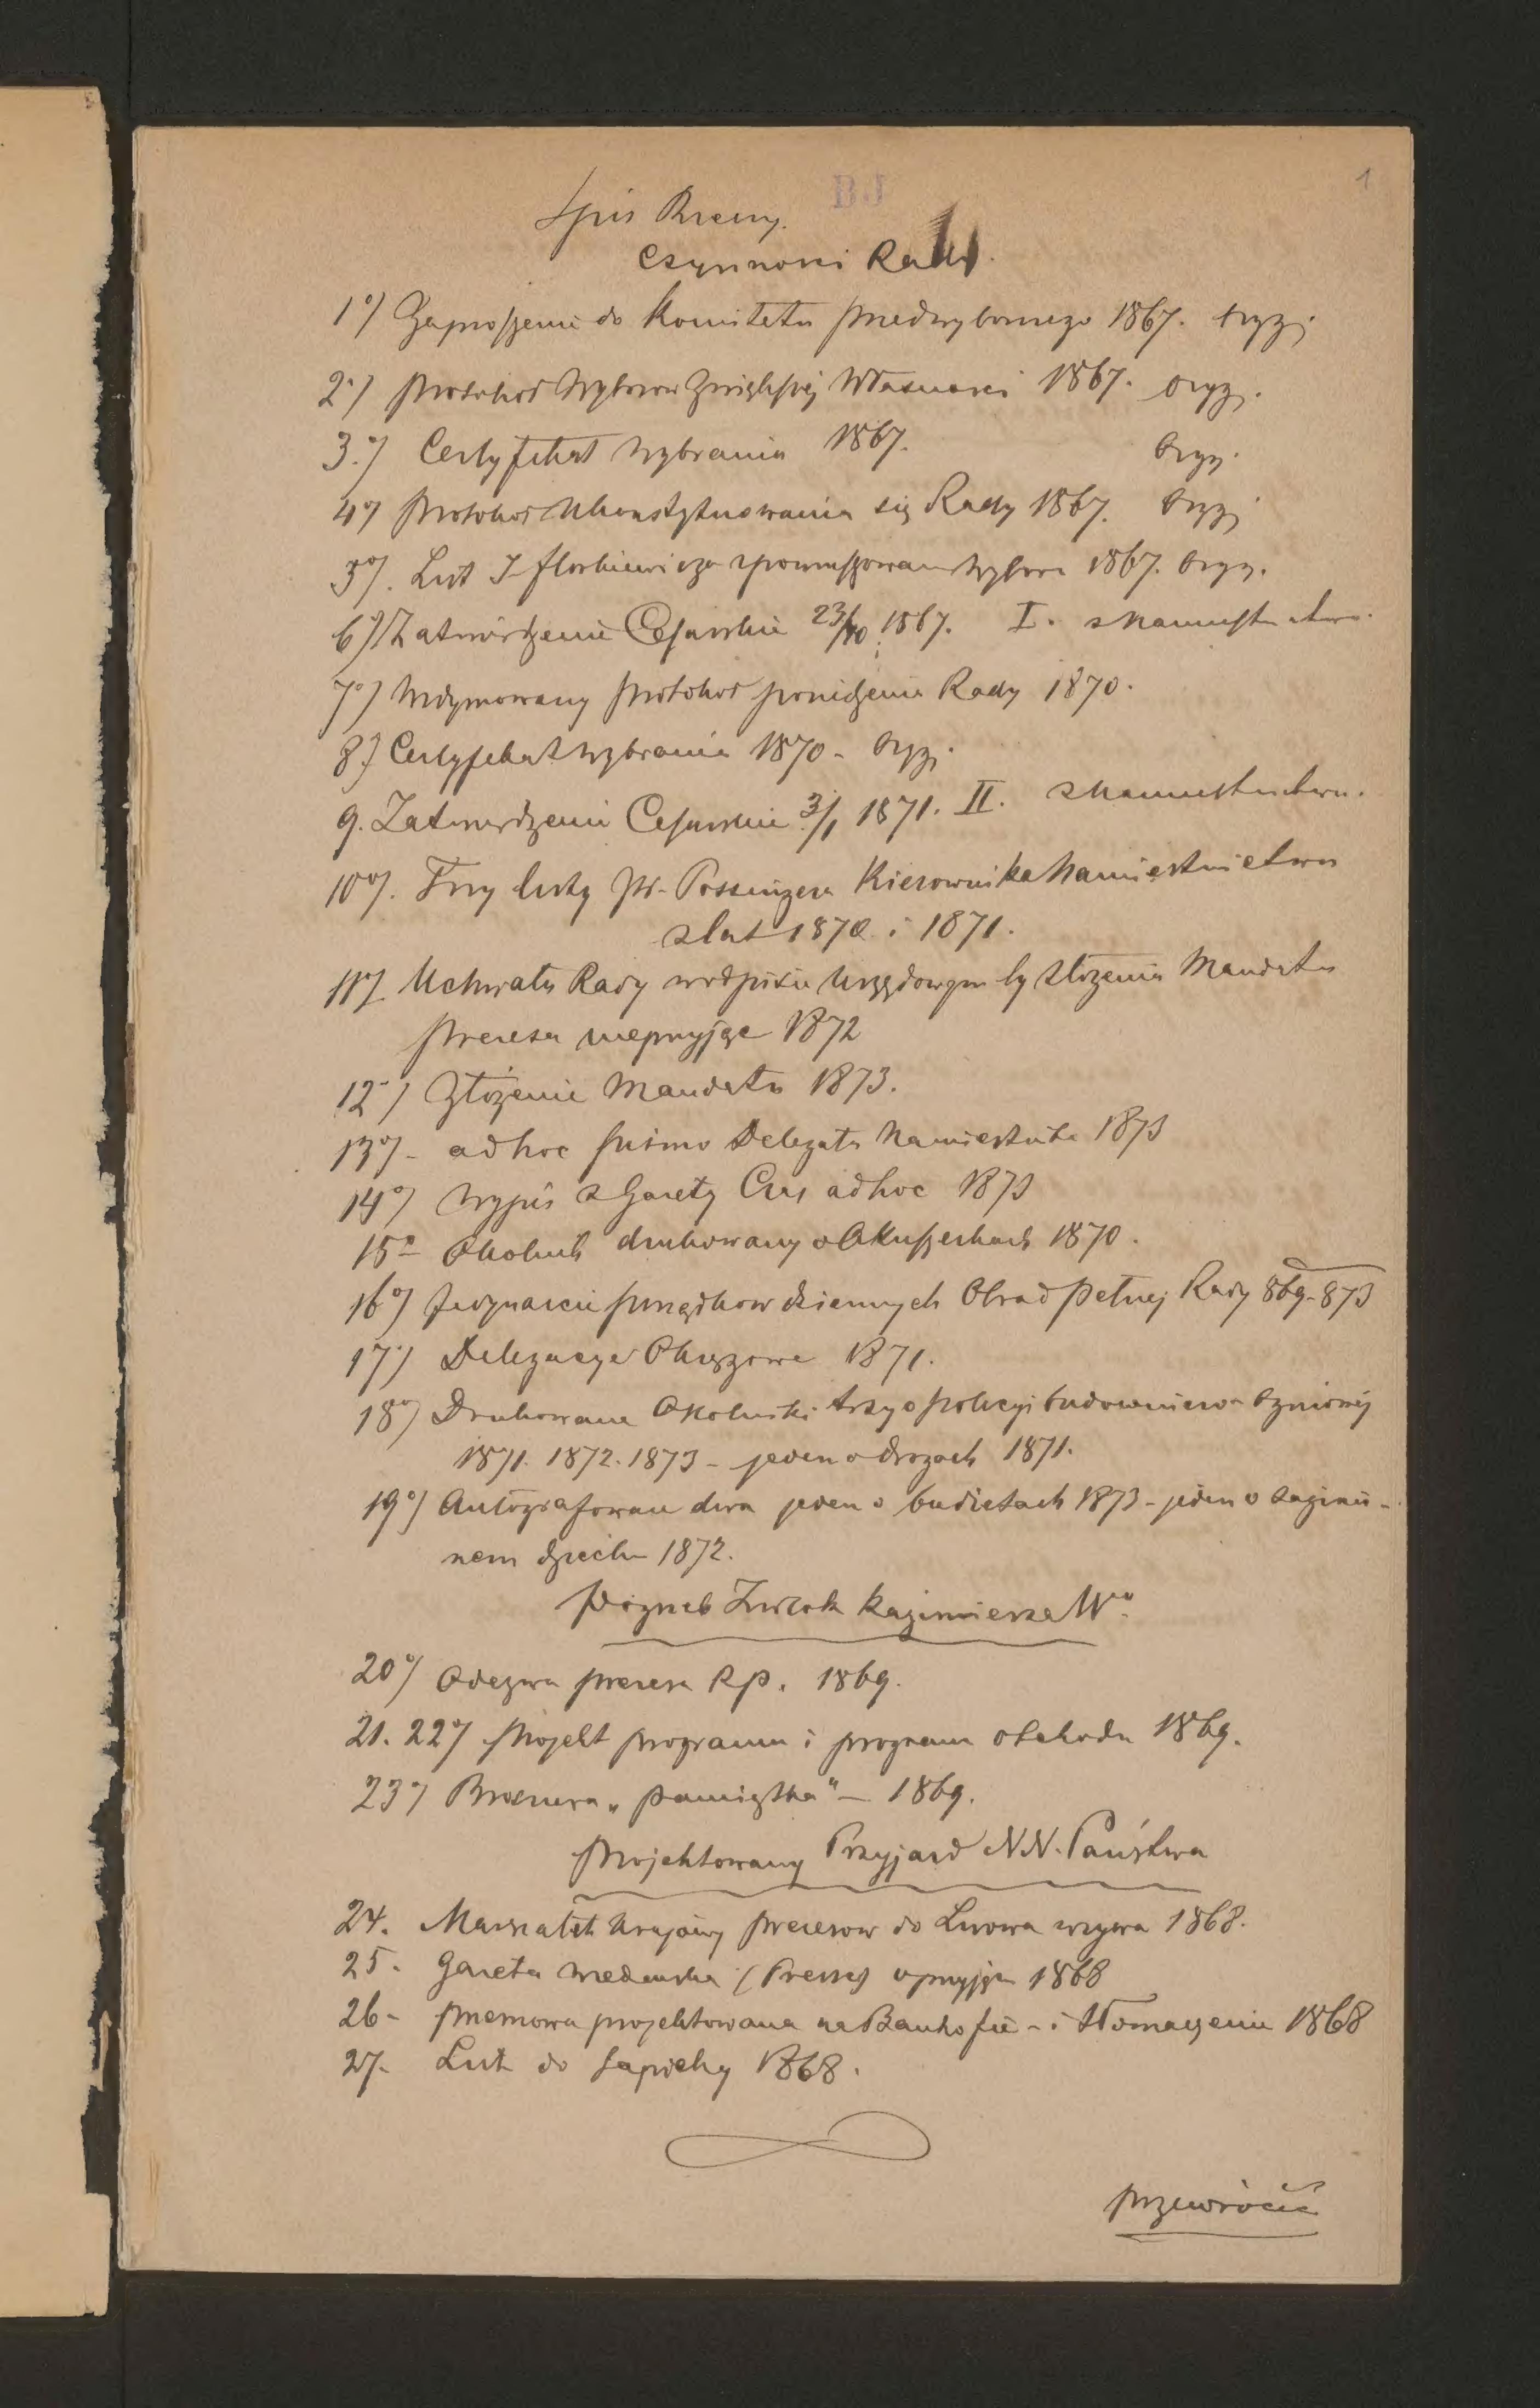 BJ
1
Spis Rzeczy.
Czynności Rady.
1º) Zaproszenie do Komitetu przedwyborczego 1867. oryg.
2º) Protokoł Wyborow Własności 1867. oryg.
3.º) Certyfikat wybrania 1867. oryg.
4º) Protokoł Ukonstytuowania się Rady 1867. oryg.
5º). List Florkiewicza wybor 1867. oryg.
6º) Zatwierdzenie Cesarskie 23/10 1867. I. z Namiestnictwa.
7º) protokoł Rady 1870.
8º) Certyfikat wybrania 1870 - oryg.
9. Zatwierdzenie Cesarskie 3/1 1871. II. z Namiestnictwa.
10º). Trzy listy Possingera Kierownika Namiestnictwa
z lat 1870 i 1871.
11º) Uchwała Rady w odpisie urzędowym Złożenia Mandatu
prezesa nieprzyjąc 1872
12º) Złożenie Mandatu 1873.
13º) - ad hoc pismo Delegata Namiestnika 1873
14º) Wypis z Gazety Czas ad hoc 1873
15º - Okolnik drukowany o Akuszerkach 1870.
16º) Jedynaście porządkow dziennych Obrad pełnej Rady 869-873
17º) Delegacye Okręgowe 1871.
18º) Drukowane Okolniki trzy o policyi budowniczo - ogniowej
1871. 1872. 1873 - jeden o drogach 1871.
19º) Autografowane dwa jeden o budżetach 1873 - jeden o zaginio-
nem dziecku 1872.
Pogrzeb Zwłok Kazimierza Wº.
20º) Odezwa prezesa R.p. 1869.
21. 22º) Projekt programu i program obchodu 1869.
23º) Broszura „Pamiątka" - 1869.
Projektowany Przyjazd N.N. Państwa
24. Marszałek krajowy prezesow do Lwowa wzywa 1868.
25. Gazeta wiedeńska (Presse) o przyjęciu 1868
26 - przemowa projektowana na Banhofie - i tłomaczenie 1868
27. List do Sapiehy 1868.
przewrócić